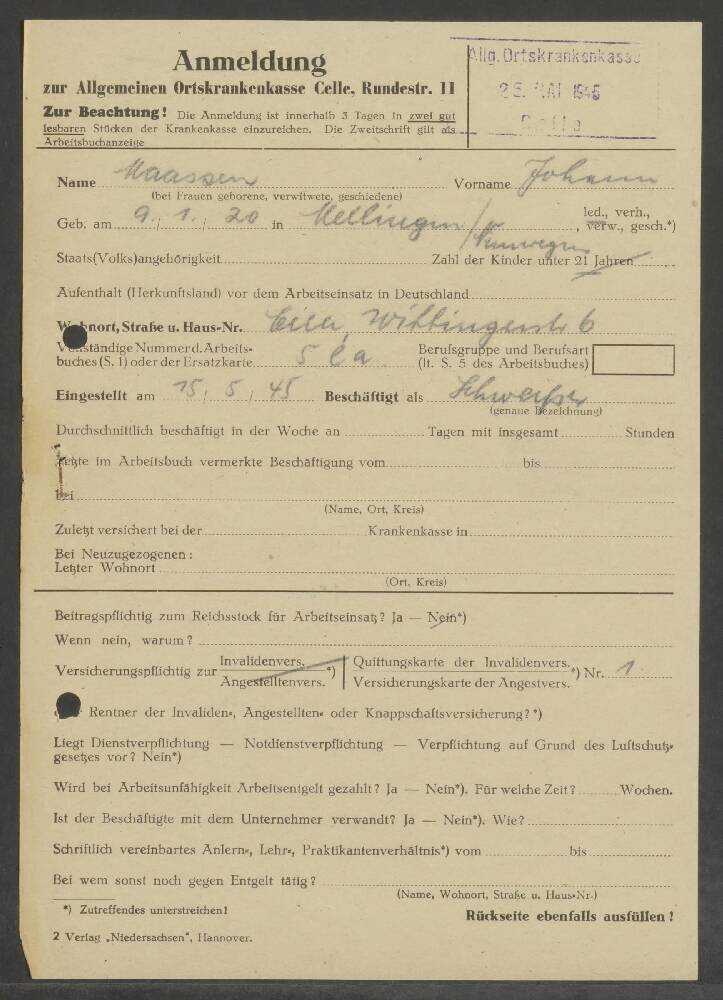 Anmeldung
zur Allgemeinen Ortskrankenkasse Celle, Rundestr. 11
Zur Beachtung! Die Anmeldung ist innerhalb 3 Tagen in zwei gut
lesbaren Stücken der Krankenkasse einzureichen. Die Zweitschrift gilt als
Arbeitsbuchanzeige
Allg. Ortskrankenkasse
25. MAI 1945
Celle
Name Maassen Vorname Johann
(bei Frauen geborene, verwitwete, geschiedene)
Geb. am 9. 1. 20 in led., verh.,
verw., gesch.*)
Staats(Volks)angehörigkeit Zahl der Kinder unter 21 Jahren
Aufenthalt (Herkunftsland) vor dem Arbeitseinsatz in Deutschland
Wohnort, Straße u. Haus-Nr. Celle, Wittingerstr 6
Vollständige Nummer d. Arbeits-
buches (S. 1) oder der Ersatzkarte 5 Berufsgruppe und Berufsart
(lt. S. 5 des Arbeitsbuches)
Eingestellt am 15. 5. 45 Beschäftigt als Schweißer
(genaue Bezeichnung)
Durchschnittlich beschäftigt in der Woche an Tagen mit insgesamt Stunden
Letzte im Arbeitsbuch vermerkte Beschäftigung vom bis
bei
(Name, Ort, Kreis)
Zuletzt versichert bei der Krankenkasse in
Bei Neuzugezogenen:
Letzter Wohnort
(Ort, Kreis)
Beitragspflichtig zum Reichsstock für Arbeitseinsatz? Ja — Nein*)
Wenn nein, warum?
Versicherungspflichtig zur Invalidenvers. Angestelltenvers. *) Quittungskarte der Invalidenvers. Versicherungskarte der Angestvers. *) Nr. 1
Rentner der Invaliden-, Angestellten- oder Knappschaftsversicherung?*)
Liegt Dienstverpflichtung — Notdienstverpflichtung — Verpflichtung auf Grund des Luftschutz-
gesetzes vor? Nein*)
Wird bei Arbeitsunfähigkeit Arbeitsentgelt gezahlt? Ja — Nein*). Für welche Zeit? Wochen.
Ist der Beschäftigte mit dem Unternehmer verwandt? Ja — Nein*). Wie?
Schriftlich vereinbartes Anlern-, Lehr-, Praktikantenverhältnis*) vom bis
Bei wem sonst noch gegen Entgelt tätig?
(Name, Wohnort, Straße u. Haus-Nr.)
*) Zutreffendes unterstreichen!
Rückseite ebenfalls ausfüllen!
2 Verlag „Niedersachsen", Hannover.